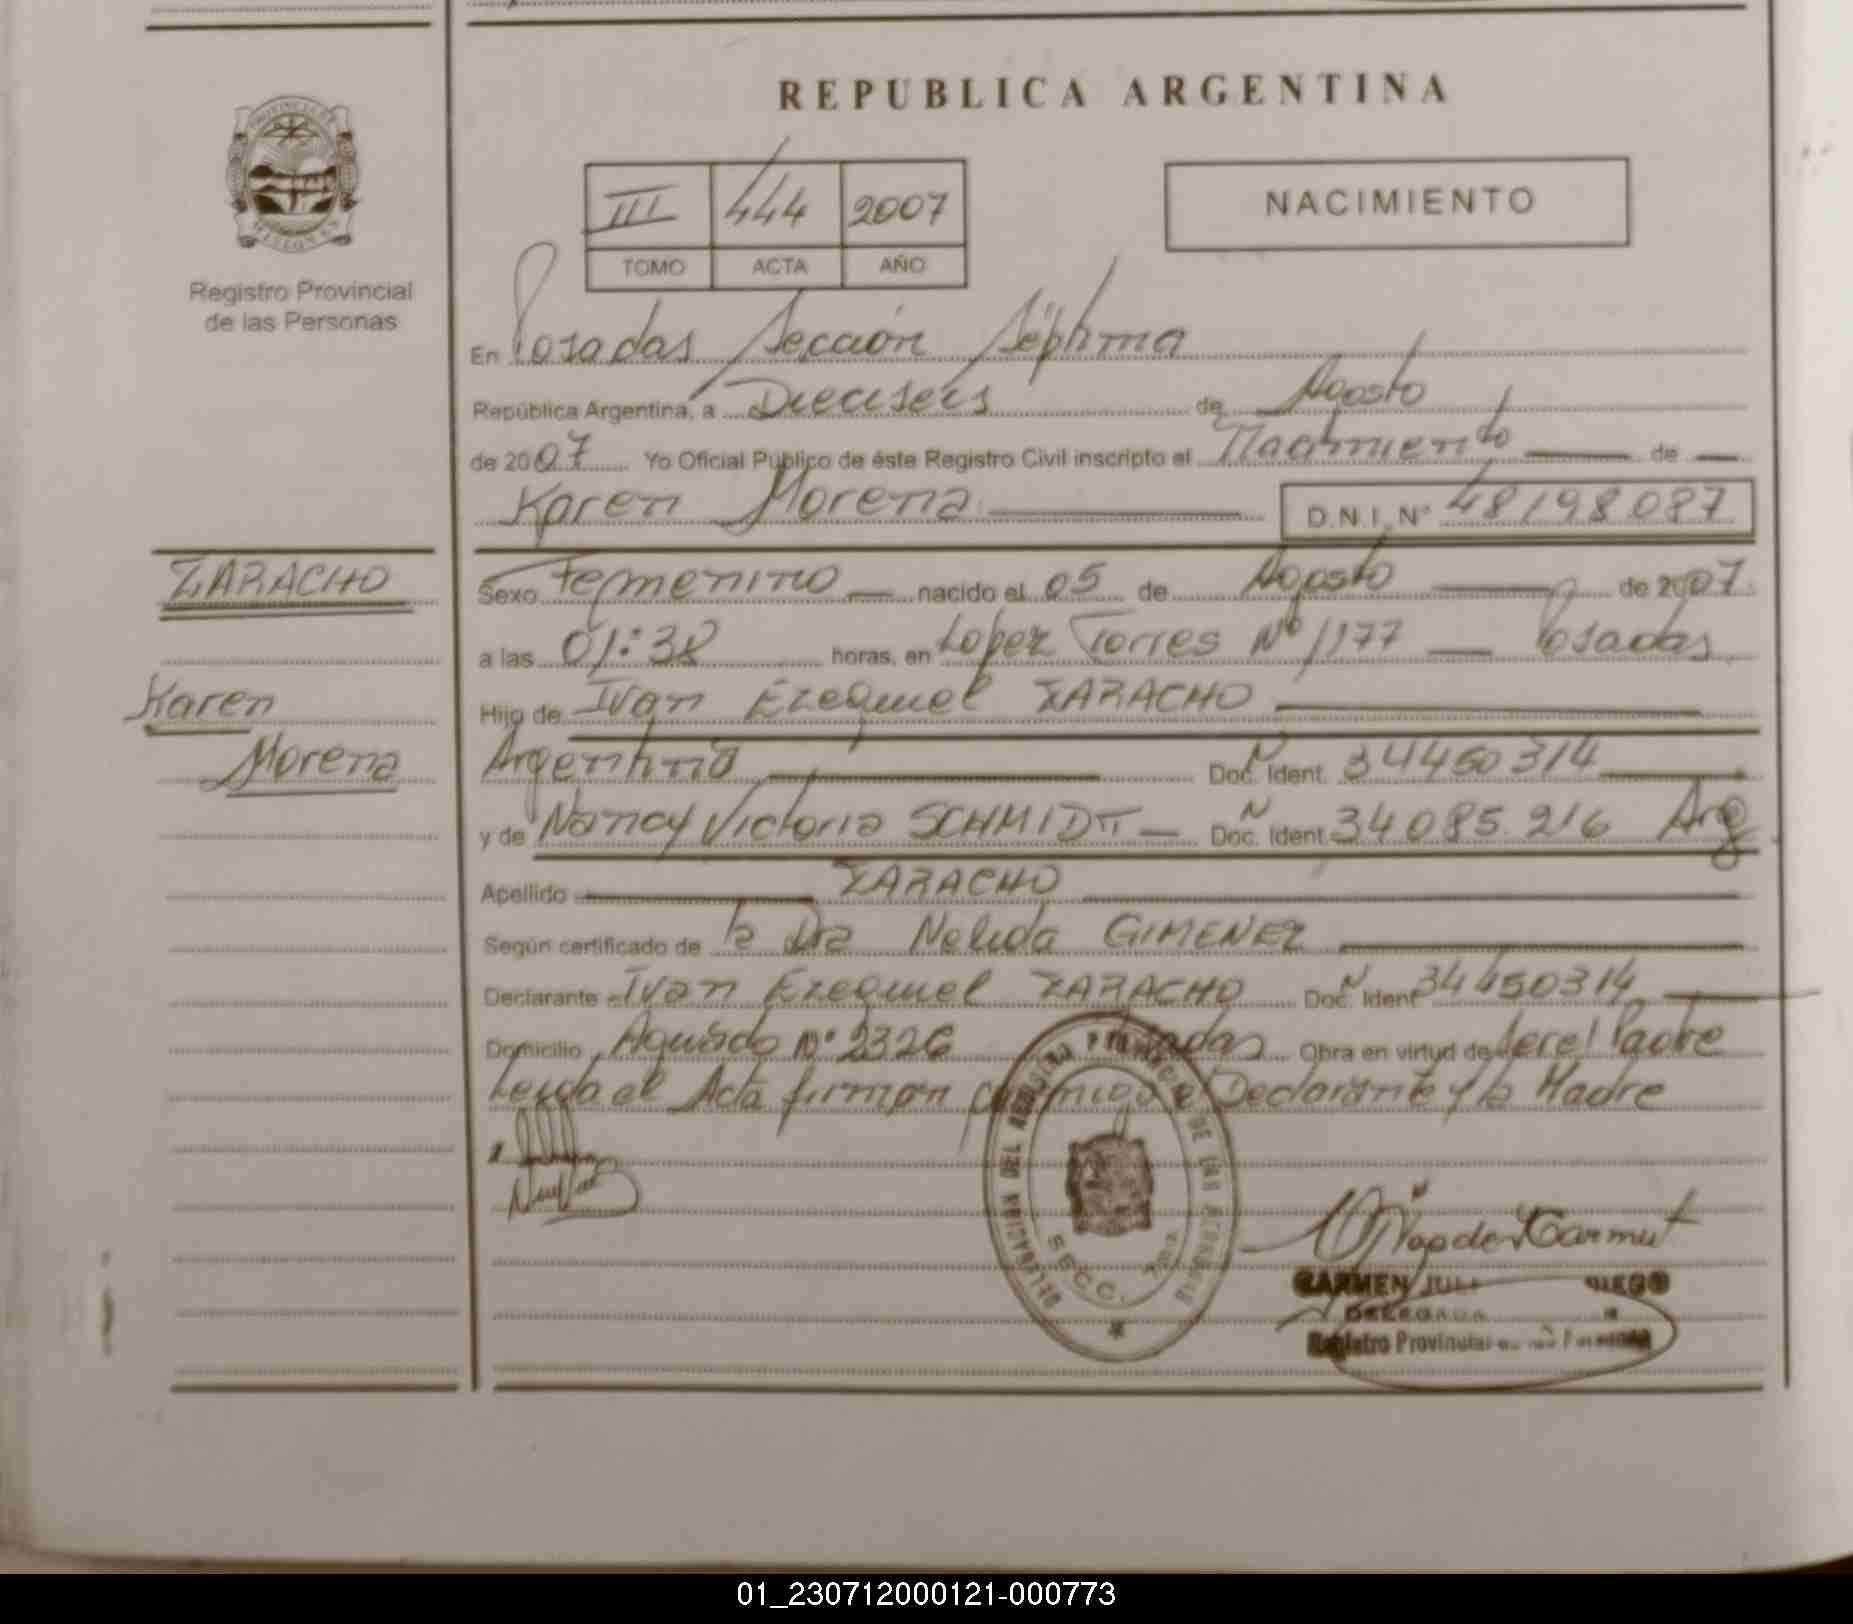 REPUBLICA ARGENTINA
PROVINCIA DE MISIONES
Registro Provincial
de las Personas
III 444 2007
TOMO ACTA AÑO
NACIMIENTO
En Posadas Sección Séptima
República Argentina, a Dieciseis de Agosto
de 2007 Yo Oficial Público de éste Registro Civil inscripto el Nacimiento de
Karen Morena D.N.I. Nº 48198087
ZARACHO
Sexo Femenino nacido el 05 de Agosto de 2007
a las 01:38 horas, en Lopez Torres Nº 1177 Posadas
Karen
Hijo de Ivan Ezequiel ZARACHO
Morena
Argentino Doc. Ident. Nº 34450314
y de Nancy Victoria SCHMIDT Doc. Ident. N 34085.216 Arg
Apellido ZARACHO
Según certificado de la Dra Nelida GIMENEZ
Declarante Ivan Ezequiel ZARACHO Doc. Ident. N 34450314
Domicilio Aguado Nº 2326 Posadas Obra en virtud de ser el Padre
Leída el Acta firman conmigo el Declarante y la Madre
DELEGACION DEL REGISTRO PROVINCIAL DE LAS PERSONAS
SECC. 7ma
CARMEN JULI DIEGO
DELEGADA
Registro Provincial de las Personas
01_230712000121-000773